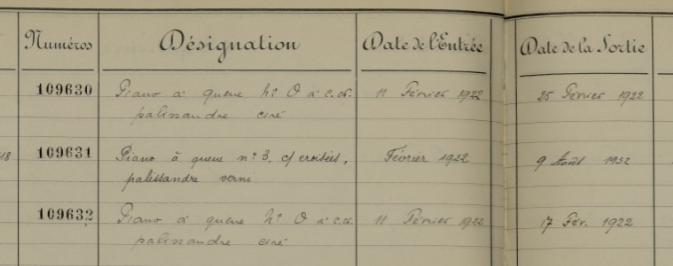 Numéros Désignation Date de l'Entrée Date de la Sortie
109630 Piano à queue n° 0 à c.cr. 11 Février 1922 25 Février 1922
palissandre ciré
109631 Piano à queue n° 3, c/ croisées, Février 1922 9 Août 1922
palissandre verni
109632 Piano à queue n° 0 à c.cr. 11 Février 1922 17 Fév. 1922
palissandre ciré